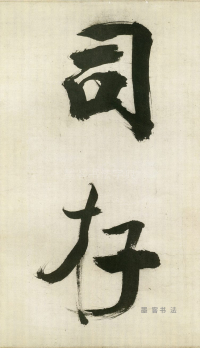 司
存
书法